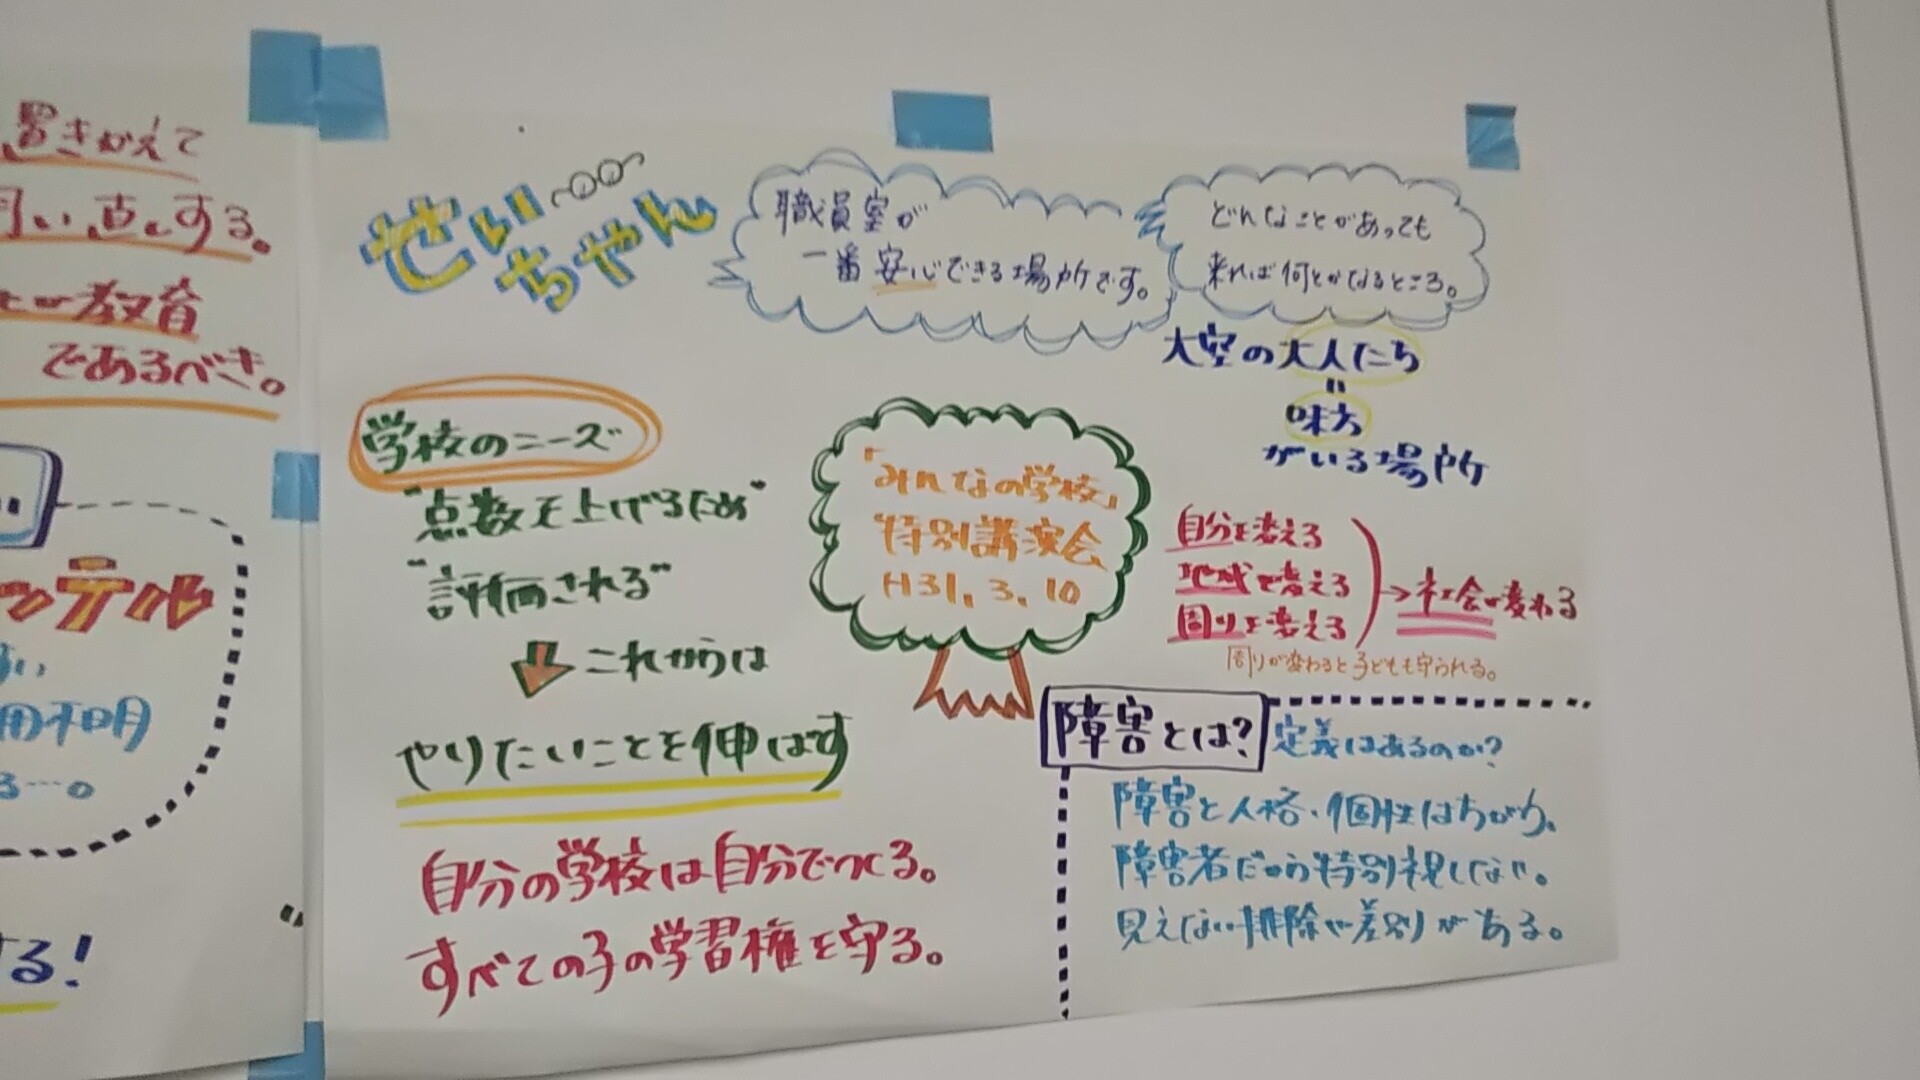 置きかえて
い直しする。
教育
であるべき。
ッテル
不明
る…。
する!
せいちゃん
職員室が
一番安心できる場所です。
どんなことがあっても
来れば何とかなるところ。
大空の大人たち
=
味方
がいる場所
学校のニーズ
"点数を上げるため"
"評価される"
これからは
やりたいことを伸ばす
自分の学校は自分でつくる。
すべての子の学習権を守る。
「みんなの学校」
特別講演会
H31.3.10
自分を変える
地域を変える
周りを変える
→社会が変わる
周りが変わると子どもも守られる。
障害とは?
定義はあるのか?
障害と人格・個性はちがう。
障害者だから特別視しない。
見えない排除や差別がある。